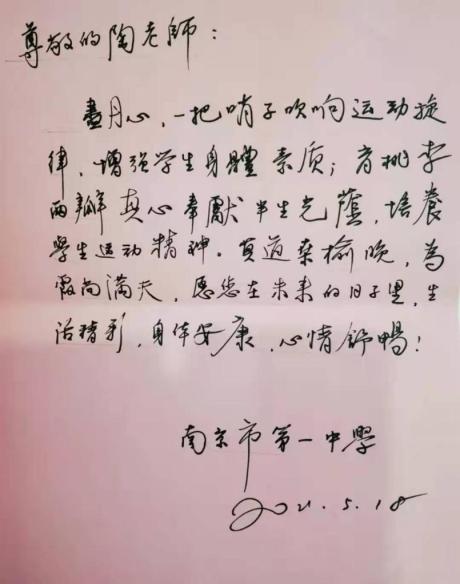 尊敬的陶老師：
盡丹心，一把哨子吹响运动旋
律，增强学生身體素质；育桃李
两辦真心奉獻半生光蔭，培養
學生运动精神。莫道桑榆晚，為
霞尚满天，愿您在未来的日子里，生
活精彩，身体安康，心情舒暢！
南京市第一中學
2021.5.18